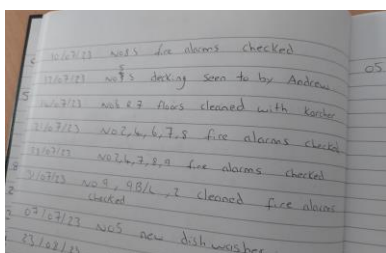 10/07/23 No8's fire alarms checked
05
12/07/23 No 5's decking seen to by Andrew
No6 & 7 floors cleaned with Karcher
No 2, 6, 7, 8 fire alarms checked
No 2, 6, 7, 8, 9 fire alarms checked
31/07/23 No 9, 9B/L, 2 cleaned fire alarms
checked
07/07/23 No5 new dishwasher
23/08/23